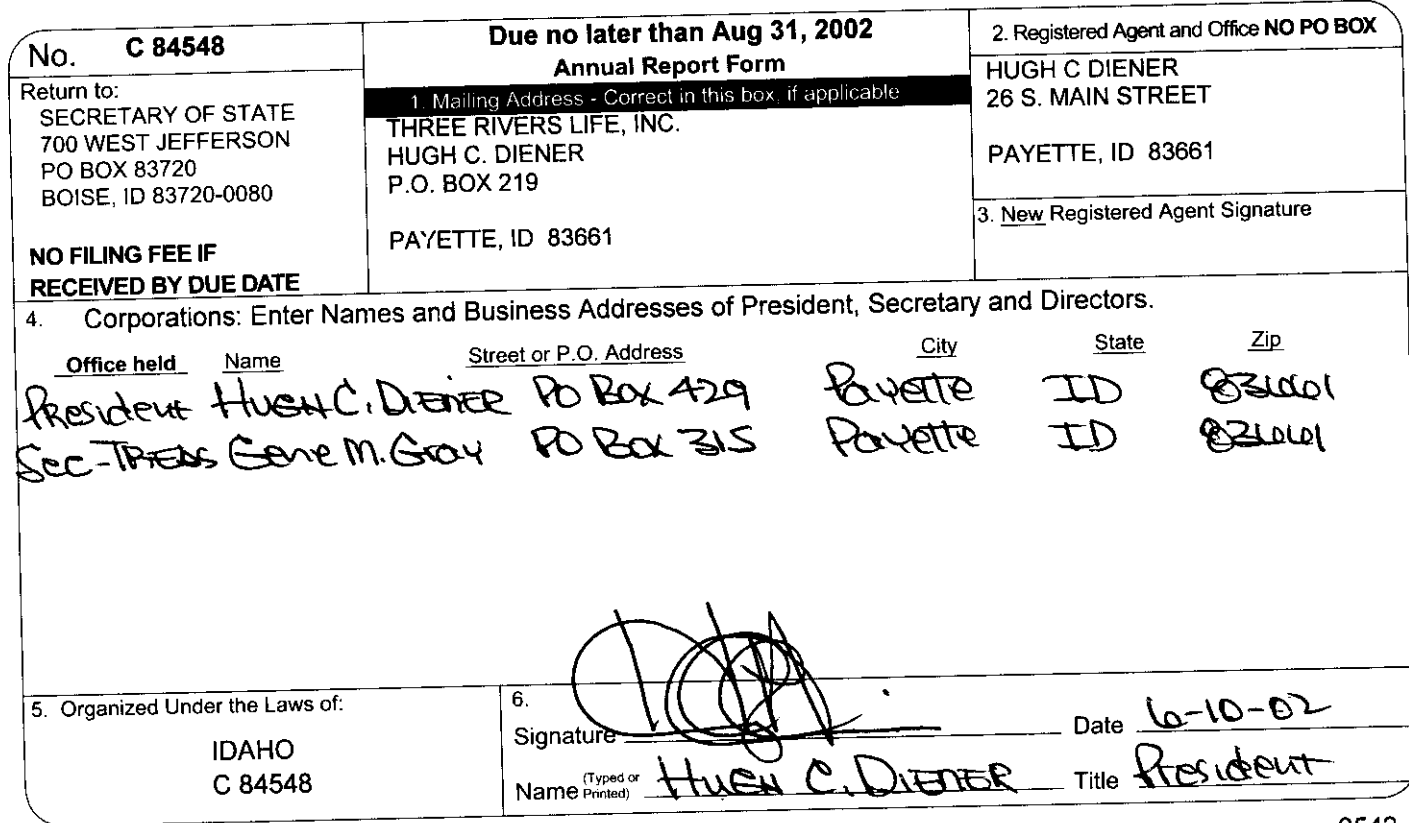 No. C 84548
Return to:
SECRETARY OF STATE
700 WEST JEFFERSON
PO BOX 83720
BOISE, ID 83720-0080
NO FILING FEE IF
RECEIVED BY DUE DATE
Due no later than Aug 31, 2002
Annual Report Form
1. Mailing Address - Correct in this box, if applicable
THREE RIVERS LIFE, INC.
HUGH C. DIENER
P.O. BOX 219
PAYETTE, ID 83661
2. Registered Agent and Office NO PO BOX
HUGH C DIENER
26 S. MAIN STREET
PAYETTE, ID 83661
3. New Registered Agent Signature
4. Corporations: Enter Names and Business Addresses of President, Secretary and Directors.
Office held Name Street or P.O. Address City State Zip
President HUGH C. DIENER PO BOX 429 Payette ID 83661
Sec-TREAS Gene M. Gray PO Box 315 Payette ID 83661
5. Organized Under the Laws of:
IDAHO
C 84548
6.
Signature Date 6-10-02
Name (Typed or Printed) HUGH C. DIENER Title President